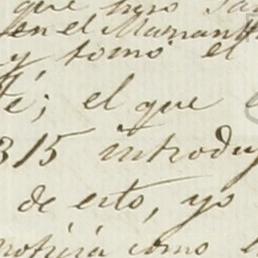 que hizo
en el Manan
y tomó el
te; el que
315 introduj
de esto, yo
noticia como